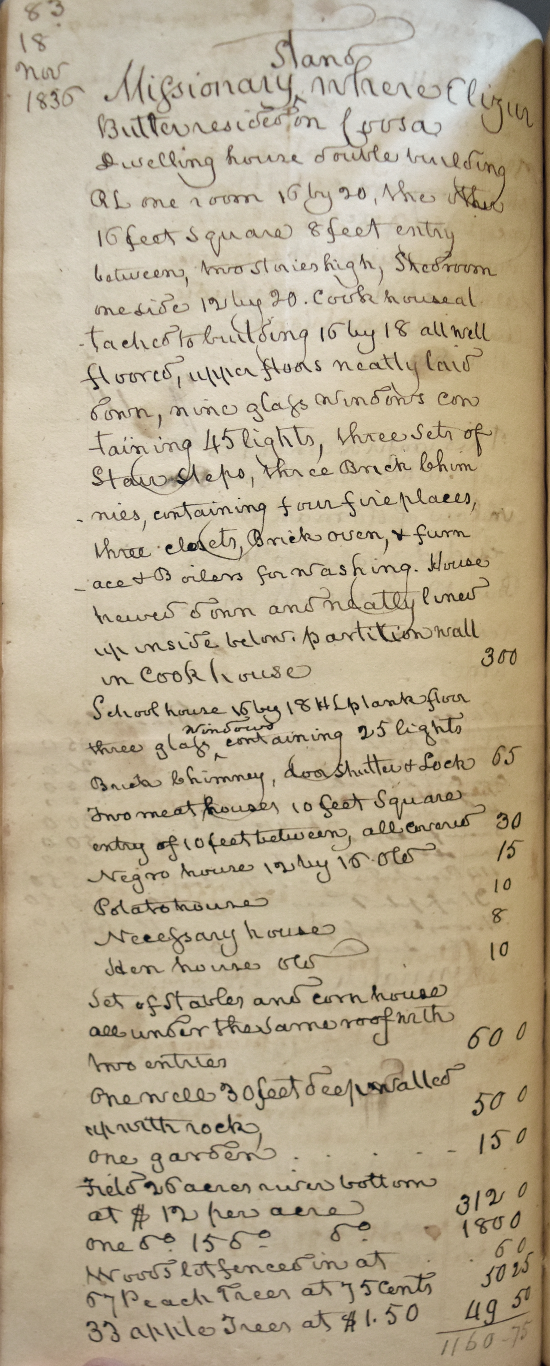 83
18
Nov
1836
Stand
Missionary, where Elizur
Butler resided on Coosa
Dwelling house double building
RL one room 16 by 20, the other
16 feet square 8 feet entry
between, two stories high, Shedroom
one side 12 by 20. Cook house at
-tached to building 16 by 18 all well
floored, upper floors neatly laid
down, nine glass windows con
taining 45 lights, three sets of
Stair steps, three Brick Chim
-nies, containing four fireplaces,
three closets, Brick oven, & furn
-ace & Boilers for washing. House
hewed down and neatly lined
up inside below. partition wall
in Cook house 300
School house 16 by 18 HL plank floor
three glass windows containing 25 lights
Brick Chimney, door Shutter & Lock 65
Two meat houses 10 feet square
entry of 10 feet between, all covered 30
Negro house 12 by 16 old 15
Potato house 10
Necessary house 8
Hen house old 10
Set of Stables and corn house
all under the same roof with
two entries 60 0
One well 30 feet deep walled
up with rock, 50 0
One garden . . . - - 15 0
Field 26 acres river bottom
at $12 per acre 312 0
one do 15 do do 180 0
Woods lot fenced in at 6 0
67 Peach Trees at 75 Cents 50 25
33 apple Trees at $1.50 49 50
1160-75